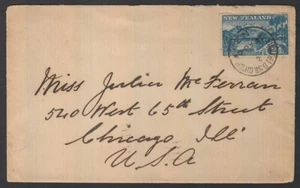 NEW ZEALAND
Miss Julia McFerran
540 West 65th Street
Chicago, Ill
U.S.A